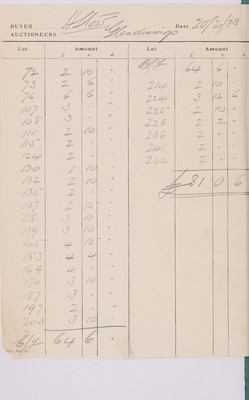 BUYER
AUCTIONEERS Glendinings Date 20/2/33
Lot Amount Lot Amount
£ s d £ s d
72 2 10 -
73 2 6 -
76 6 6 -
107 3 - -
108 3 - -
111 2 10 -
115 2 -
124 2 -
130 1 10
132 2 10
135 2 -
137 2 15
138 3 10
139 3 10
145 4 15
153 4 4
164 4 -
170 3 10
187 3
197 2 -
203 3 10
C/f 64 6 -
B/f 64 6 -
214 2 10 -
224 3 12 6
225 2 10 -
228 2 2 -
238 2 - -
241 2 - -
242 2 - -
£81 0 6